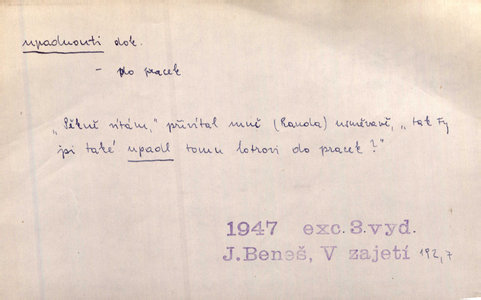 upadnouti dok.
– do pracek
„Pěkně vítám," přivítal mně (Randa) usměvavě, „tak Ty
jsi také upadl tomu lotrovi do pracek?"
1947 exc. 3. vyd.
J. Beneš, V zajetí 192,7